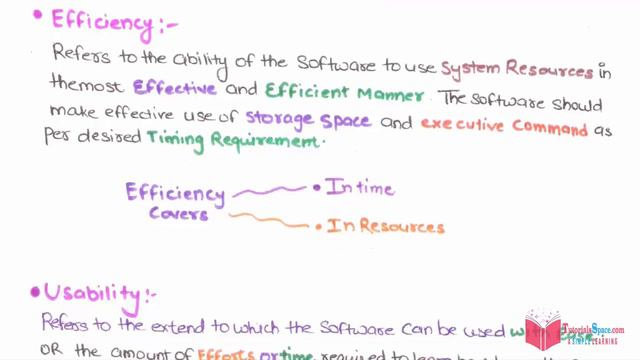 • Efficiency:-
Refers to the ability of the Software to use System Resources in
the most Effective and Efficient Manner. The software should
make effective use of Storage Space and executive Command as
per desired Timing Requirement.
Efficiency • In time
Covers • In Resources
• Usability:-
Refers to the extend to which the Software can be used with Ease
OR the amount of Efforts or time required to learn
TutorialsSpace.com
A SIMPLE LEARNING